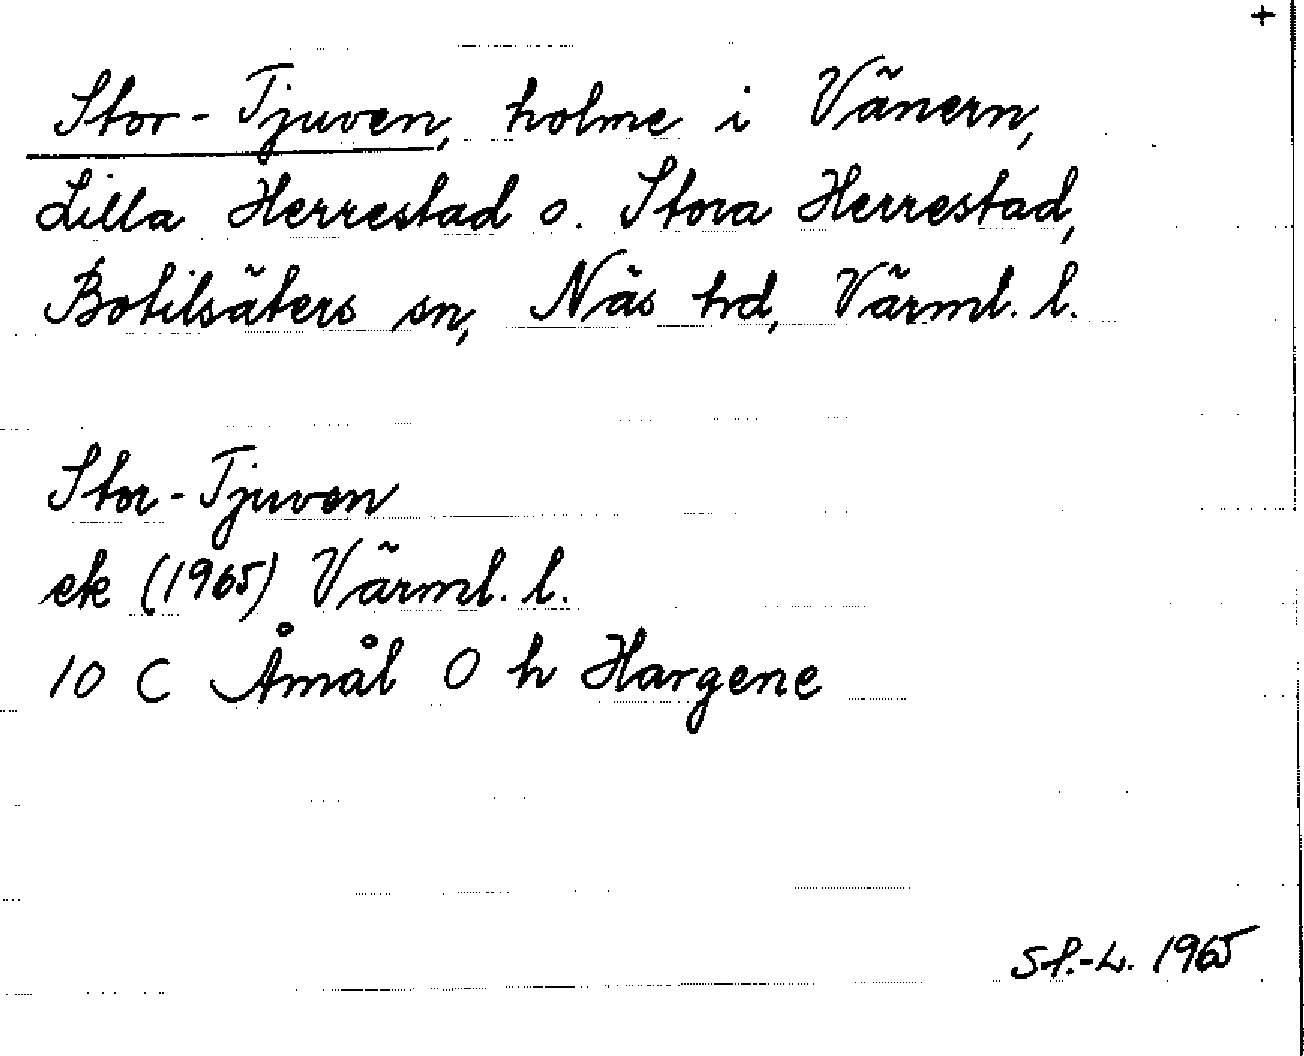 +
Stor-Tjuven, holme i Vänern,
Lilla Herrestad o. Stora Herrestad,
Botilsäters sn, Näs hd, Värml. l.
Stor-Tjuven
ek (1965) Värml. l.
10 C Åmål O h Hargene
Sf.-L. 1965